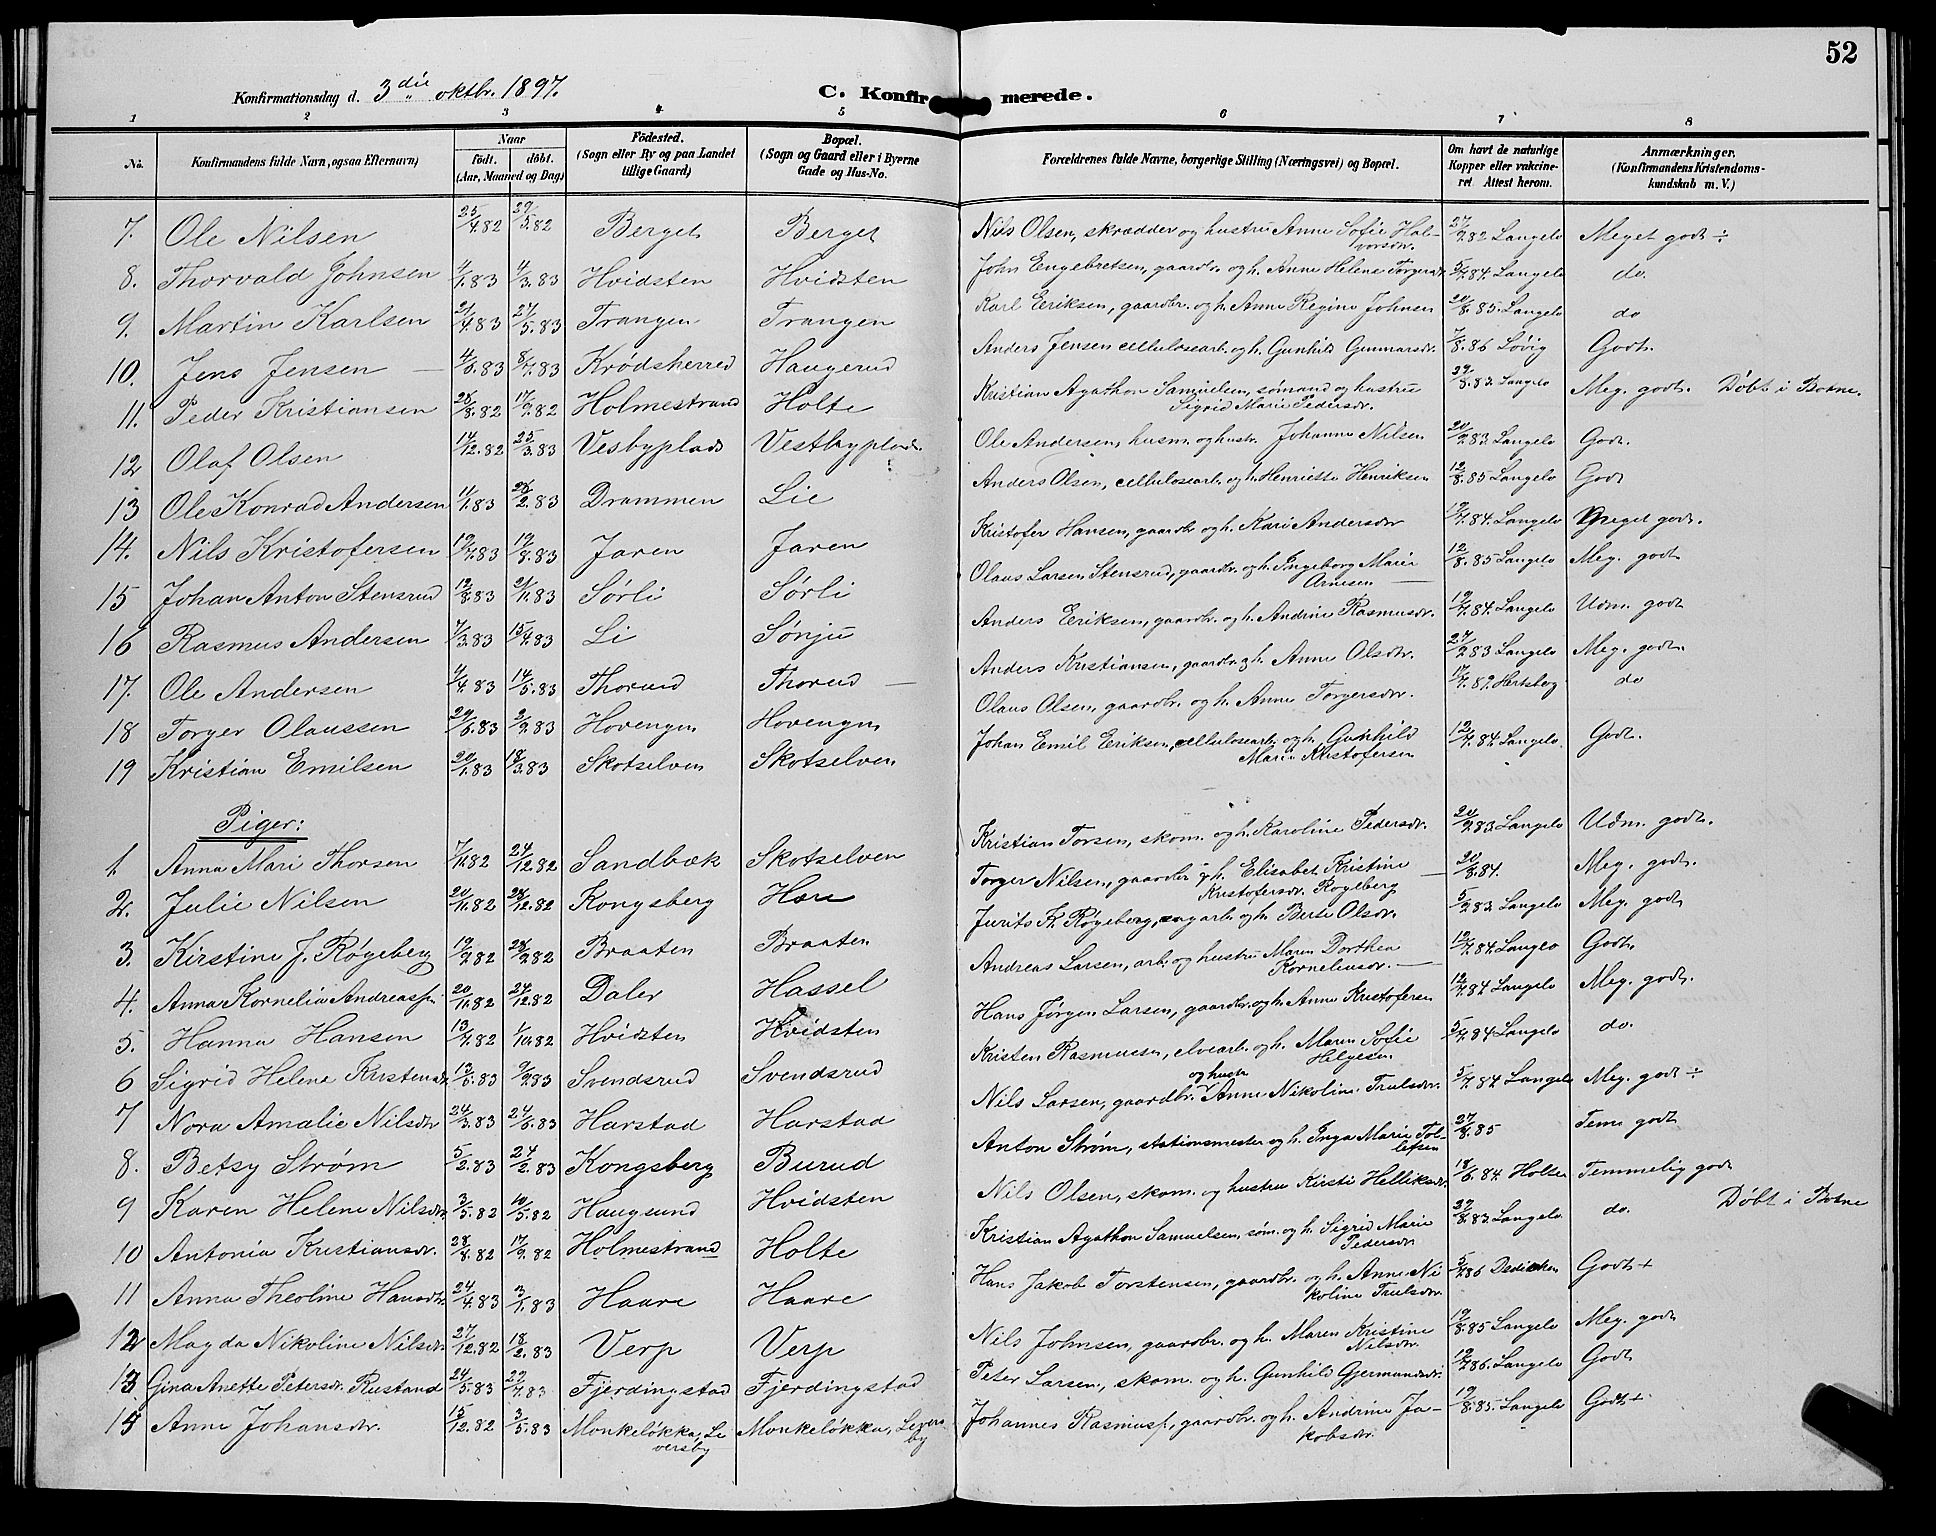 52
Konfirmationsdag d. 3die oktbr. 1897.
C. Konfirmerede.
1 2 3 4 5 6 7 8
No. Konfirmandens fulde Navn, ogsaa Efternavn) Naar født. døbt. (Aar, Maaned og Dag) Födested. (Sogn eller By og paa Landet tillige Gaard) Bopæl. (Sogn og Gaard eller i Byerne Gade og Hus-No. Forældrenes fulde Navne, borgerlige Stilling (Næringsvei) og Bopæl. Om havt de naturlige Kopper eller vakcineret Attest herom. Anmærkninger. (Konfirmandens Kristendomskundskab m. V.)
7. Ole Nilsen 25/4.82 29/5.82 Berget Berget Nils Olsen, skrædder og hustru Anne Sofie Halvorsdr. 27/9.82 Langelo Meget godt ÷
8. Thorvald Johnsen 4/1.83 4/3.83 Hvidsten Hvidsten John Engebretsen, gaardbr. og h. Anne Helene Torgersdr. 5/7.84. Langelo do.
9. Martin Karlsen 21/4.83 27/5.83 Trangen Trangen Karl Eriksen, gaardbr. og h. Anne Regine Johnsen 20/8.85. Langelo do
10. Jens Jensen — 4/6.83 8/7.83 Krødsherred Haugerud Anders Jensen cellulosearb. og h. Gunhild Gunnarsdr. 7/8.86 Lövig Godt.
11. Peder Kristiansen 28/8.82 17/9.82 Holmestrand Holte Kristian Agathon Samuelsen, sömand og hustru Sigrid Marie Pedersdr. 29/8.83. Langelo Meg. godt. Døbt i Botne.
12 Olaf Olsen 14/12.82 25/3.83 Vesbyplads Vestbyplads Ole Andersen, husm. og hustr. Johanne Nilsen 20/9.83 Langelo Godt.
13 Ole Konrad Andersen 11/1.83 26/2.83 Drammen Lie Anders Olsen, cellulosearb. og h. Henriette Henriksen 12/8.85 Langelo Godt
14. Nils Kristofersen 19/7.83 19/8.83 Jaren Jaren Kristofer Hansen, gaardbr og h. Kari Andersdr 12/7.84. Langelo Meget godt.
15 Johan Anton Stensrud 12/8.83 21/11.83 Sørli Sørli Olaus Larsen Stensrud, gaardbr. og h. Ingeborg Marie Arnesen — 12/8.85 Langelo Meg. godt
16 Rasmus Andersen 7/3.83 15/4.83 Li Sønju Anders Eriksen, gaardbr. og h. Andrine Rasmusdr. 12/7.84. Langelo Udm. godt
17. Ole Andersen 4/4.83 14/5.83 Thorud Thorud — Anders Kristiansen, gaardbr. og h. Anne Olsdtr. 27/9.83 Langelo Meg. godt.
18 Torger Olaussen 29/6.83 2/9.83 Hovengen Hovengen Olaus Olsen, gaardbr. og h. Anne Torgersdr. 17/7.89. Hertzberg do
19 Kristian Emilsen 20/1.83 18/3.83 Skotselven Skotselven Johan Emil Eriksen, cellulosearb. og h. Gunhild Marie Kristofersen 12/7.84. Langelo. Godt.
Piger:
1. Anna Mari Thorsen 7/11.82 24/12.82 Sandbæk Skotselven Kristian Torsen, skom. og h. Karoline Pedersdr. 20/9.83. Langelo Udm. godt.
2. Julie Nilsen 20/11.82 28/12.82 Kongsberg Hore Torger Nilsen, gaardbr og h. Elisabet Kristine Kristofersdr. Røgeberg — 20/8.84. Meg. godt.
3. Kirstine J. Røgeberg 19/7.82 28/9.82 Braaten Braaten Jurits K. Røgeberg, sagarb. og h. Berte Olsdr. 5/9.83. Langelo Meg. godt
4. Anna Kornelia Andreasss. 20/11.82 24/12.82 Daler Hassel Andreas Larsen, arb. og hustru Maren Dorthea Korneliusdr. — 12/7.84. Langelo Godt.
5. Hanna Hansen 13/7.82 1/10.82 Hvidsten Hvidsten Hans Jørgen Larsen, gaardbr. og h. Anne Kristofersen 12/7.84 Langelo Meg. godt.
6 Sigrid Helene Kristensdr. 13/5.83 9/9.83 Svendsrud Svendsrud Kristen Rasmussen, elvearb. og h. Maren Sofie Helgesen 5/7.84. Langelo do.
7 Nora Amalie Nilsdr 24/3.83 24/6.83 Harstad Harstad Nils Larsen, gaardbr. og hustr Anne Nikoline Trulsdr. 5/7.84 Langelo Meg. godt ÷
8. Betsy Strøm 5/2.83 24/2.83 Kongsberg Burud Anton Strøm, stationsmester og h. Inga Marie Tollefsen 27/8.85 Tem. godt
9 Karen Helene Nilsdr. 3/5.82 10/5.82 Haugsund Hvidsten Nils Olsen, skom. og hustru Kirsti Helliksdr. 18/6.84. Holter Temmelig godt
10 Antonia Kristiansdr. 28/8.82 17/9.82 Holmestrand Holte Kristian Agathon Samuelsen, søm. og h. Sigrid Marie Pedersdr 29/8.83 Langelo. do. Døbt i Botne
11 Anna Theoline Hansdtr. 24/4.83 3/1.83 Haare Haare Hans Jakob Torstensen, gaardbr. og h. Anne Nikoline Trulsdr. 5/7.86 Dedichen Godt +
12 Magda Nikoline Nilsdr. 27/12.82 18/2.83 Verp Verp Nils Johnsen, gaardbr. og h. Maren Kristine Nilsdr. 12/8.85 Langelo Meg. godt
13 Gina Anette Petersdr. Rustand 24/5.83 22/7.83 Fjerdingstad Fjerdingstad Peter Larsen, skom. og h. Gunhild Gjermundsdr. 12/7.86. Langelo Godt
14 Anne Johansdr. 15/12.82 3/5.83 Monkeløkka, Leversby Monkeløkka, Leversby Johannes Rasmuss., gaardbr. og h. Andrine Jakobsdr. 19/8.85. Langelo Godt +